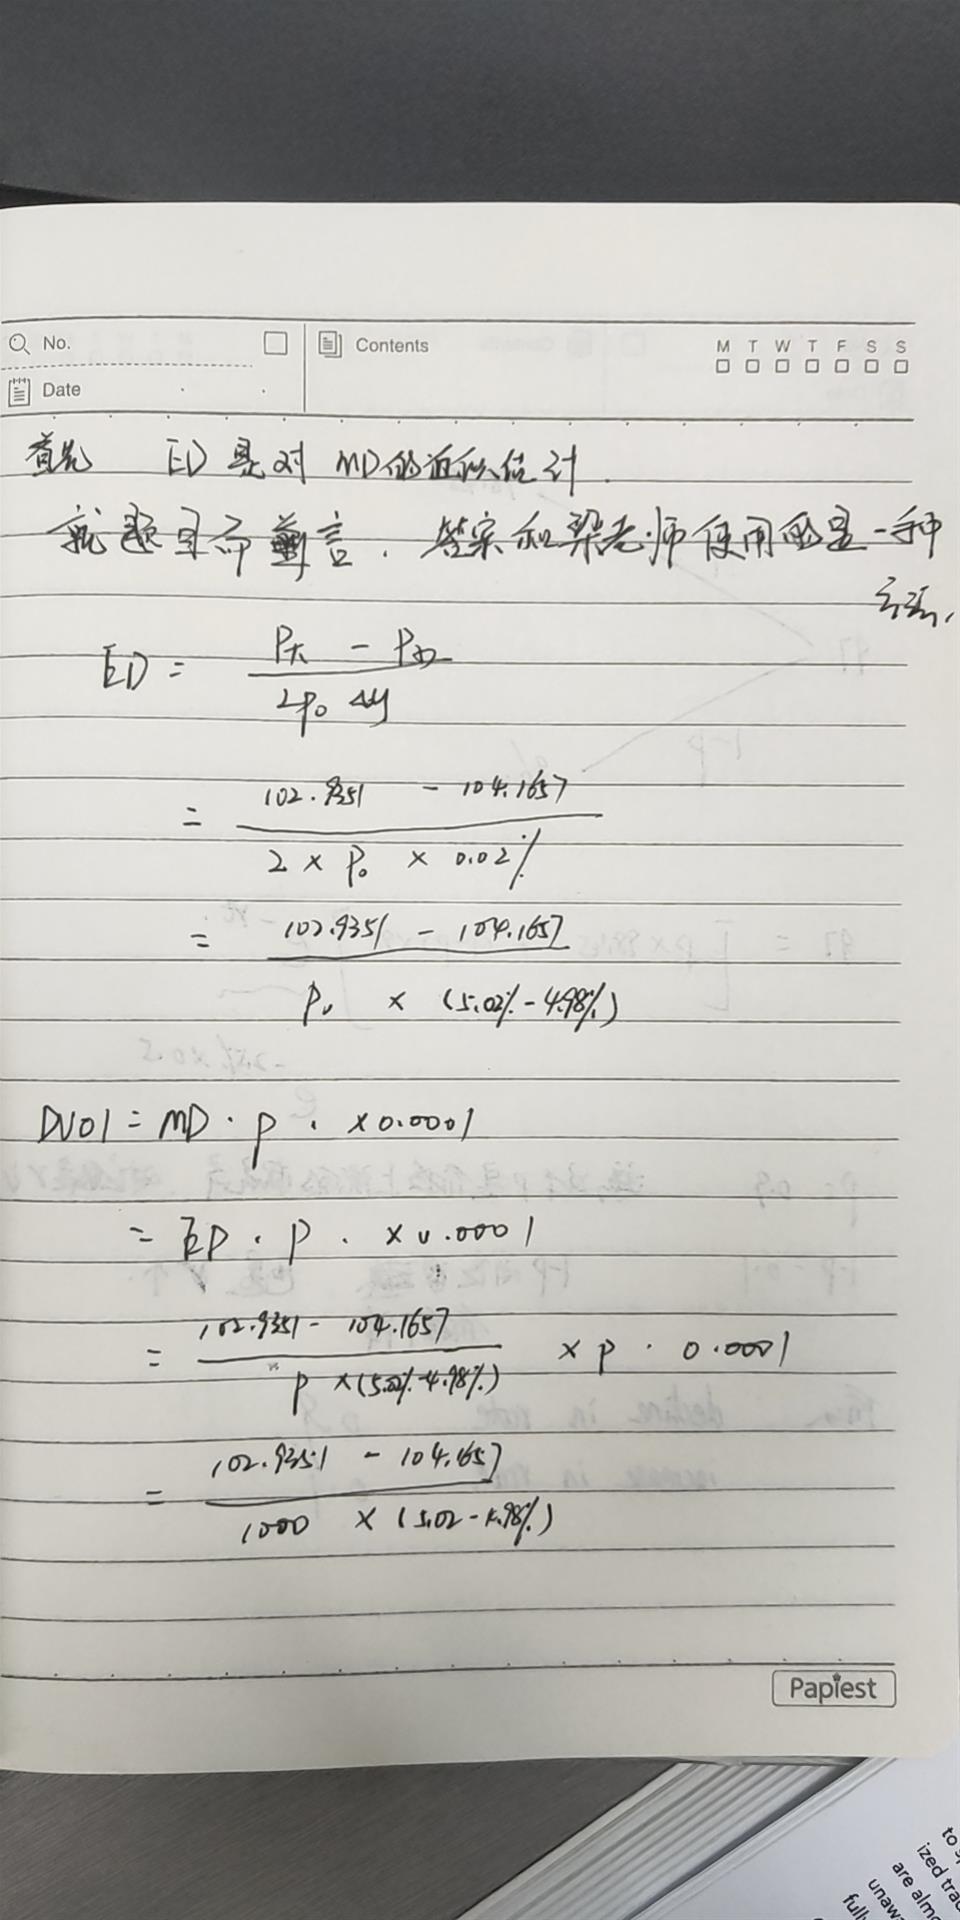 No.
Contents
M T W T F S S
Date
首先 ED 是对 MD的近似估计.
就题目而言. 答案和梁老师使用的是一种
方法,
ED = P大 - P小
2P₀ Δy
= 102.9351 - 104.1657
2 × P₀ × 0.02%
= 102.9351 - 104.1657
P₀ × (5.02% - 4.98%)
DV01 = MD · P · ×0.0001
= ED · P · ×0.0001
= 102.9351 - 104.1657 × P · 0.0001
P ×(5.02% - 4.98%)
= 102.9351 - 104.1657
1000 × (5.02 - 4.98%)
Papiest
to
ized tra
are almo
unaw
full